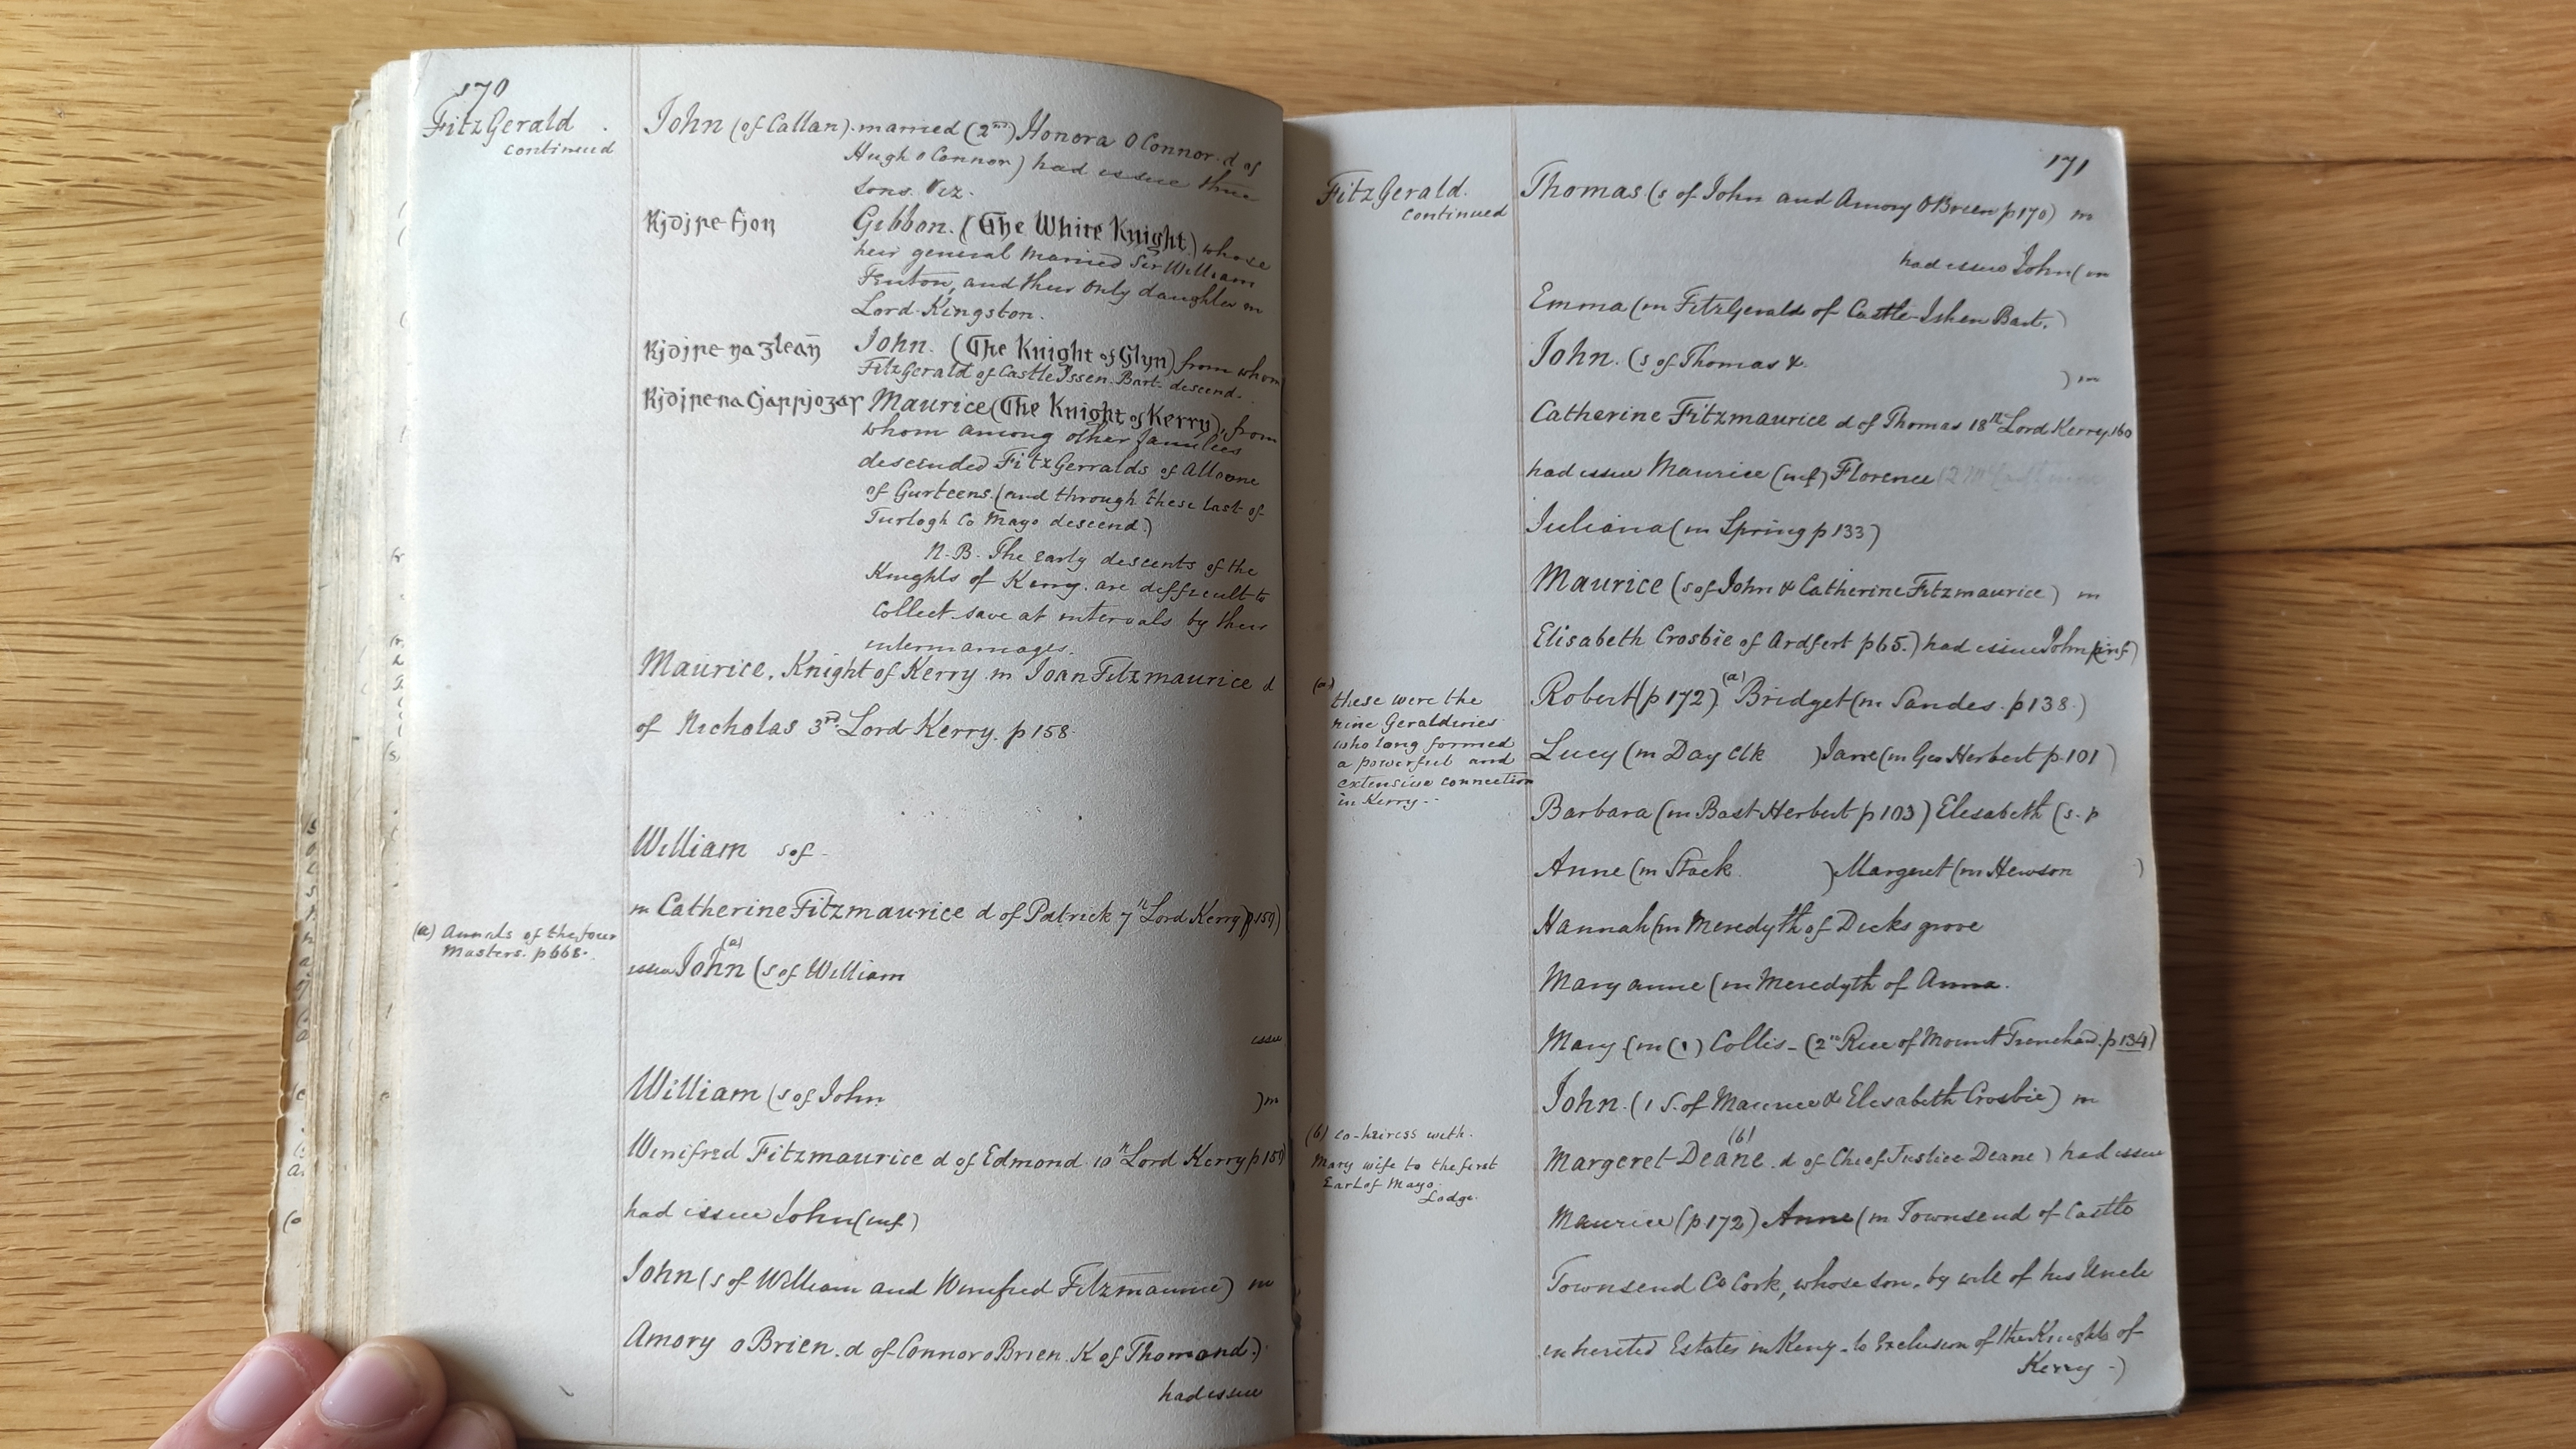 170
FitzGerald
continued
John (of Callan). married (2nd) Honora O Connor. d of
Hugh o Connor) had issue three
sons. Viz.
Gibbon. (The White Knight) whose
heir general married Sir William
Fenton, and their only daughter m
Lord Kingston.
John. (The Knight of Glyn) from whom
FitzGerald of Castle Issen. Bart. descend.
Maurice (The Knight of Kerry), from
whom among other families
descended FitzGerralds of
of Gurteens. (and through these last of
Turlogh Co Mayo descend.)
N.B. The early descents of the
Knights of Kerry. are difficult to
Collect save at intervals by their
intermarriages.
Maurice, Knight of Kerry m Joan Fitzmaurice d
of Nicholas 3rd Lord Kerry. p 158
William s of -
m Catherine Fitzmaurice d of Patrick 7th Lord Kerry p 159)
(a) Annals of the four
Masters. p 668.
issue John (a) (s of William
issue
William (s of John )m
Winifred Fitzmaurice d of Edmond 10th Lord Kerry p 159)
had issue John (inf)
John (s of William and Winifred Fitzmaurice) m
Amory o Brien. d of Connor o Brien. K of Thomond.)
had issue
171
FitzGerald.
continued
Thomas (s of John and Amory O Brien p 170) m
had issue John (m
Emma (m FitzGerald of Castle-Ishen Bart.)
John. (s of Thomas &
) m
Catherine Fitzmaurice d of Thomas 18th Lord Kerry. 160
had issue Maurice (inf) Florence
Juliana (m Spring p 133)
Maurice (s of John & Catherine Fitzmaurice) m
Elisabeth Crosbie of Ardfert p 65.) had issue John (inf)
(a)
these were the
nine Geraldines
who long formed
a powerful and
extensive connection
in Kerry. -
Robert (p 172) (a) Bridget (m Sandes. p 138.)
Lucy (m Day Clk ) Jane (m Geo Herbert p. 101)
Barbara (m Bast Herbert p 103) Elesabeth (s. p
Anne (m Stack ) Margeret (m Hewson )
Hannah (m Meredyth of Dicks grove
Mary anne (m Meredyth of Anna.
Mary (m (1) Collis - (2nd Rice of Mount Trenchard. p 134)
John. (1 S. of Maurice & Elesabeth Crosbie) m
(b) Co-heiress with.
Mary wife to the first
Earl of Mayo.
Lodge.
Margeret Deane (b) d of Chief Justice Deane) had issue
Maurice (p 172) Anne (m Townsend of Castle
Townsend Co Cork, whose son, by will of his Uncle
inherited Estates in Kerry - to Exclusion of the Knights of
Kerry -)